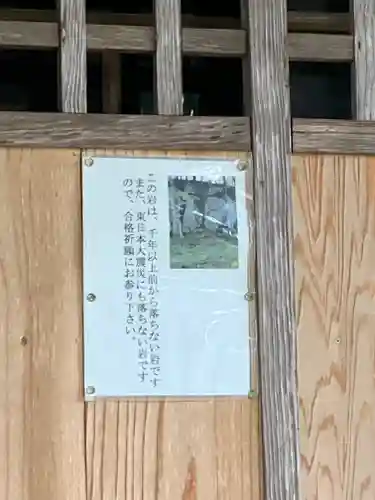 この岩は、千年以上前から落ちない岩です
また、東日本大震災にも落ちない岩です
ので、合格祈願にお参り下さい。